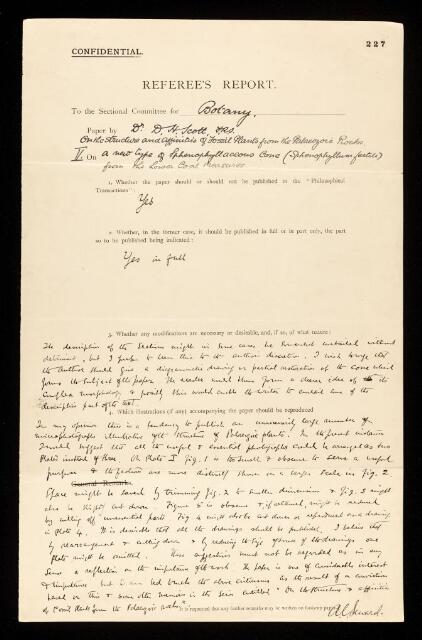 CONFIDENTIAL.
227
REFEREE'S REPORT.
To the Sectional Committee for Botany.
Paper by Dr. D. H. Scott, FRS.
On the Structure and affinities of Fossil Plants from the Palaeozoic Rocks
V. On a new type of Sphenophyllaceous Cone (Sphenophyllum fertile)
from the Lower Coal Measures
1. Whether the paper should or should not be published in the "Philosophical
Transactions":
Yes
2. Whether, in the former case, it should be published in full or in part only, the part
so to be published being indicated:
Yes in full
3. Whether any modifications are necessary or desirable, and, if so, of what nature:
The description of the sections might in some cases be somewhat curtailed without
detriment, but I prefer to leave this to the author's discretion. I wish to urge that
the author should give a diagrammatic drawing or partial restoration of the cone which
forms the subject of the paper. The reader would thus form a clearer idea of its
complex morphology & possibly this would enable the writer to curtail some of the
descriptive part of the text.
4. Which illustrations (if any) accompanying the paper should be reproduced
In my opinion there is a tendency to publish an unnecessarily large number of
microphotographs illustrative of the structure of Palaeozoic plants. In the present instance
I would suggest that all the useful & essential photographs could be arranged as two
Plates instead of three. On Plate I Fig. 1 is too small & obscure to serve a useful
purpose & the features are more distinctly shown on a larger scale in Fig. 2
General Remarks
Space might be saved by trimming fig. 2 to smaller dimensions & Fig. 3 might
also be slightly cut down. Figure 5 is obscure & if retained, might be reduced
by cutting off unessential parts. Fig 4 might also be cut down or reproduced as a drawing
in Plate 4. It is desirable that all the drawings should be published. I believe that
by rearrangement & cutting down & by reducing the size of some of the drawings one
plate might be omitted. These suggestions must not be regarded as in any
sense a reflection on the importance of the work. The paper is one of considerable interest
& importance but I am led to make the above criticisms as the result of a conviction
based on this & some other memoirs in the series entitled "On the structure & affinities
of Fossil Plants from the Palaeozoic rocks."
It is requested that any further remarks may be written on another page
A C Seward.